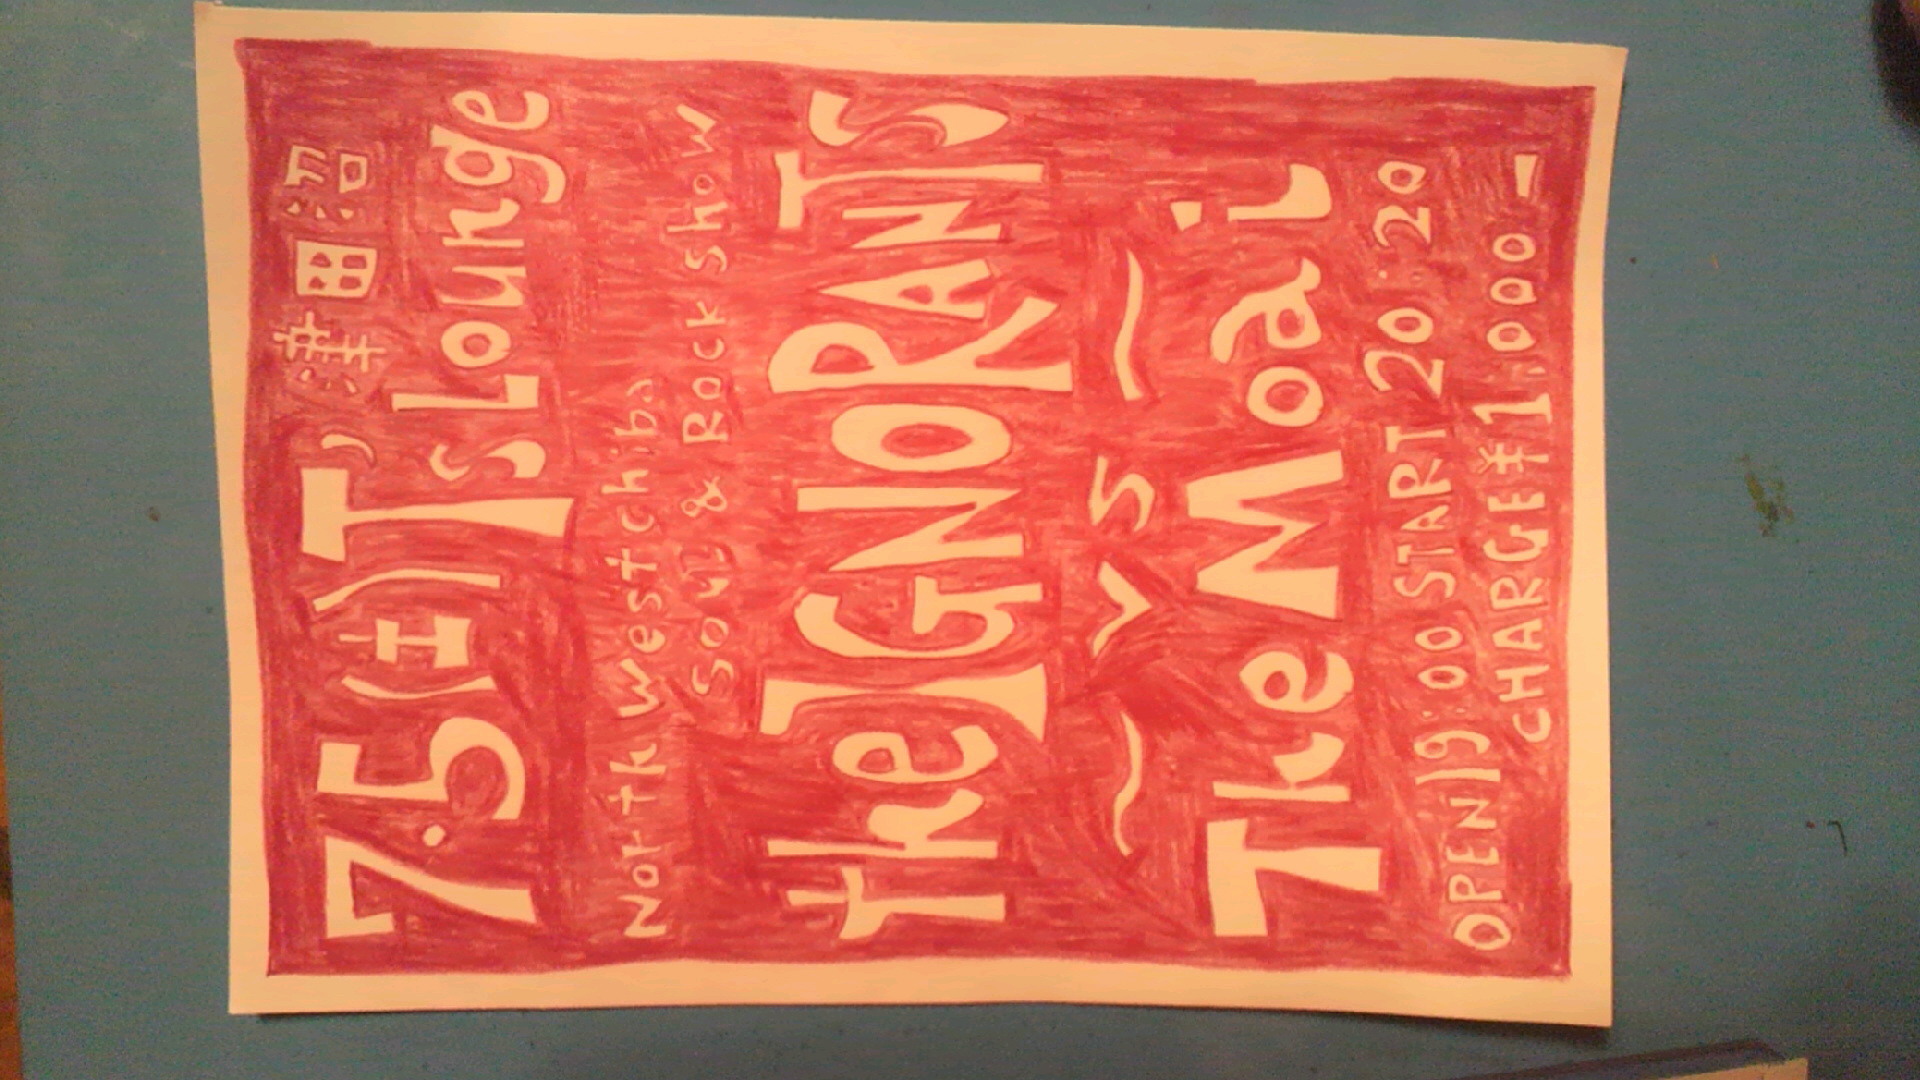 7.5(土)T's Lounge
津田沼
North West chiba
Soul & Rock show
the IGNORANTS
~ vs ~
The Moai
OPEN 19:00 START 20:20
CHARGE ¥1,000-